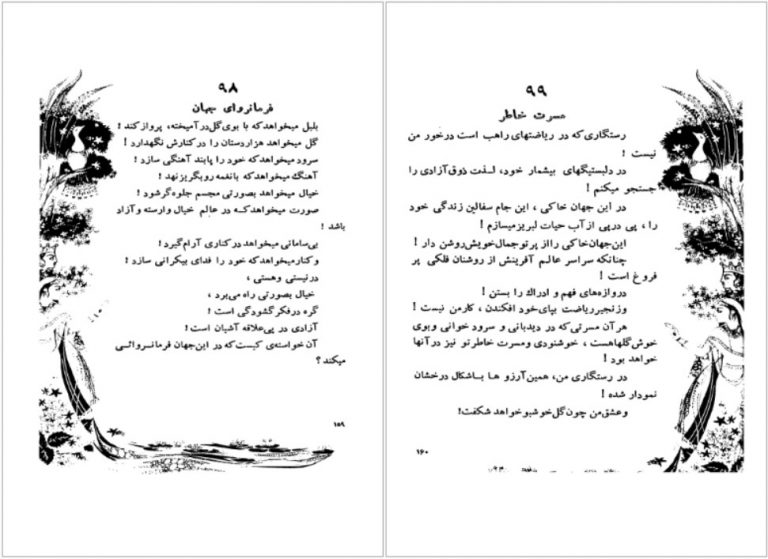 ۹۸
فرمانروای جهان
بلبل میخواهد که با بوی گل در آمیخته، پرواز کند !
گل میخواهد هزاردستان را در کنارش نگهدارد !
سرود میخواهد که خود را پابند آهنگی سازد !
آهنگ میخواهد که بانغمه روبگریز نهد !
خیال میخواهد بصورتی مجسم جلوه‌گر شود !
صورت میخواهد کـه در عالم خیال وارسته و آزاد
باشد !
بی‌سامانی میخواهد در کناری آرام گیرد !
و کنار میخواهد که خود را فدای بیکرانی سازد !
در نیستی و هستی ،
خیال بصورتی راه می‌برد ،
گره در فکر گشودگی است !
آزادی در پی علاقه آشیان است !
آن خواسته‌ی کیست که در این جهان فرمانروائـی
میکند ؟
۱۵۹
۹۹
مسرت خاطر
رستگاری که در ریاضتهای راهب است در خور من
نیست !
در دلبستگیهای بیشمار خود، لـذت ذوق آزادی را
جستجو میکنم !
در این جهان خاکی ، این جام سفالین زندگی خود
را ، پی در پی از آب حیات لبریز میسازم !
این جهان خاکی را از پرتو جمال خویش روشن دار !
چنانکه سراسر عالم آفرینش از روشنان فلکی پر
فروغ است !
دروازه‌های فهم و ادراك را بستن !
و زنجیر ریاضت بپای خود افکندن ، کار من نیست !
هر آن مسرتی که در دیدبانی و سرود خوانی و بوی
خوش گلهاست ، خوشنودی و مسرت خاطر تو نیز در آنها
خواهد بود !
در رستگاری من، همین آرزو ها بـاشکال درخشان
نمودار شده !
و عشق من چون گل خوشبو خواهد شکفت!
۱۶۰